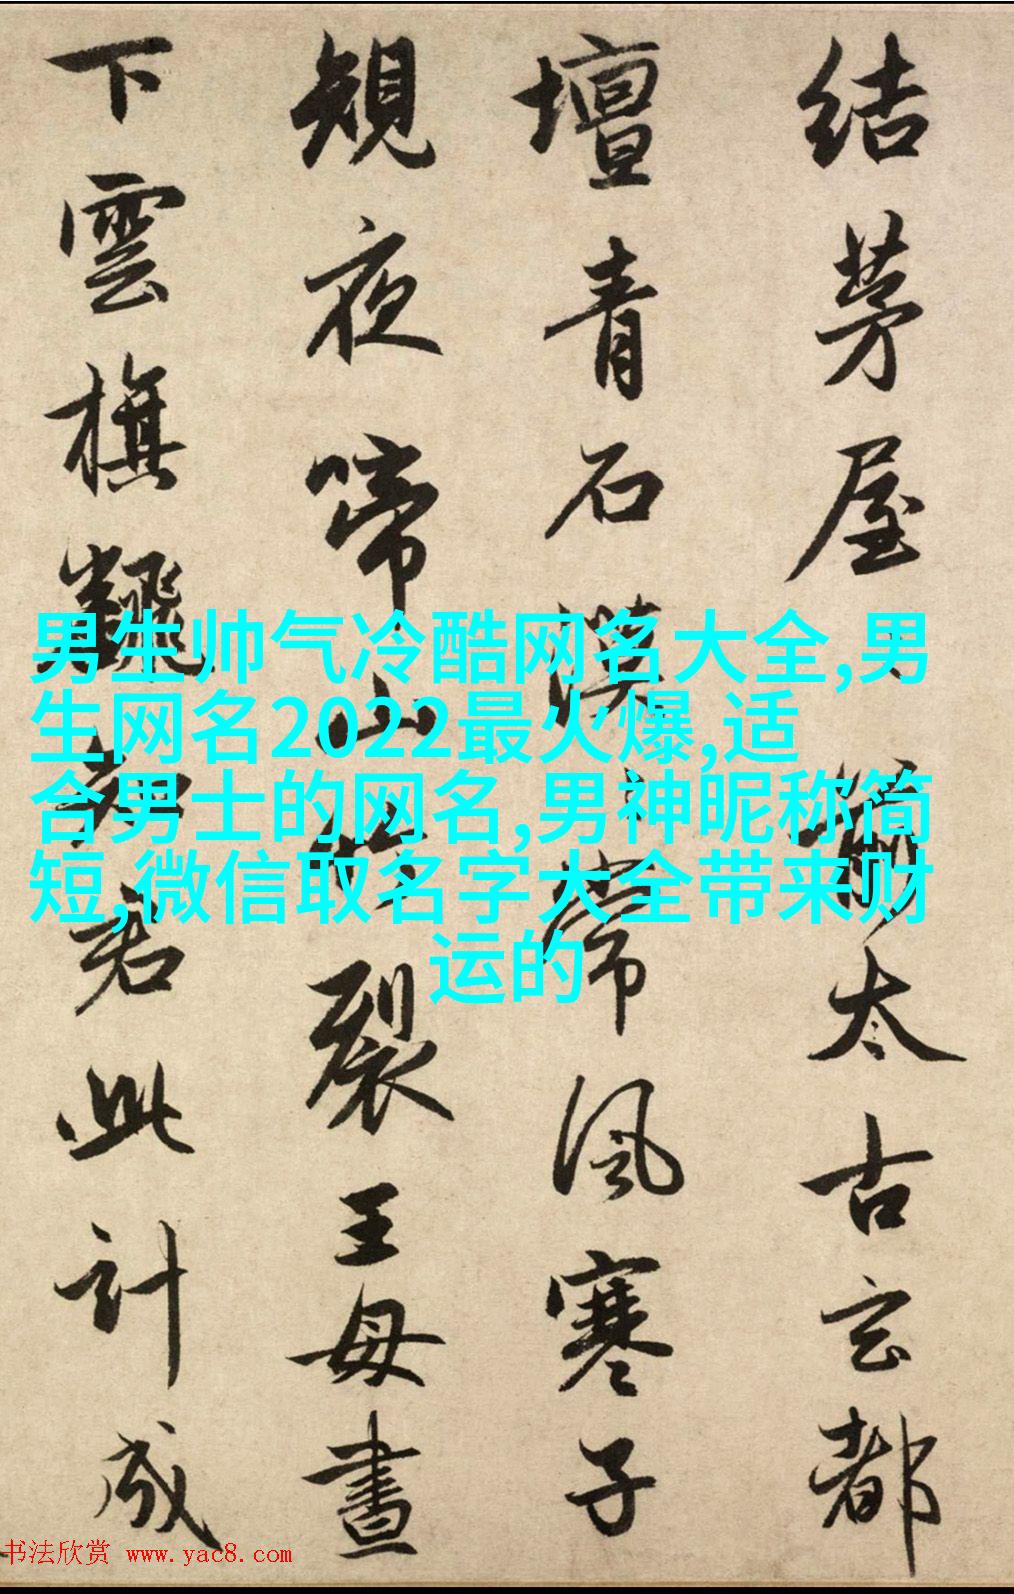 結茅屋太古玄都
壇青石漠常風寒子
規夜啼山竹裂王母晝
下雲旗飜知君此計成
男生帅气冷酷网名大全,男
生网名2022最火爆,适
合男士的网名,男神昵称简
短,微信取名字大全带来财
运的
书法欣赏 www.yac8.com